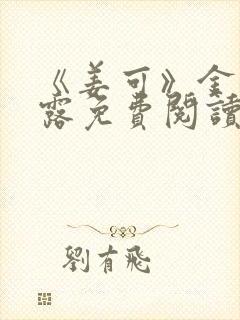 《姜可》金
露免費閱讀
劉有飛